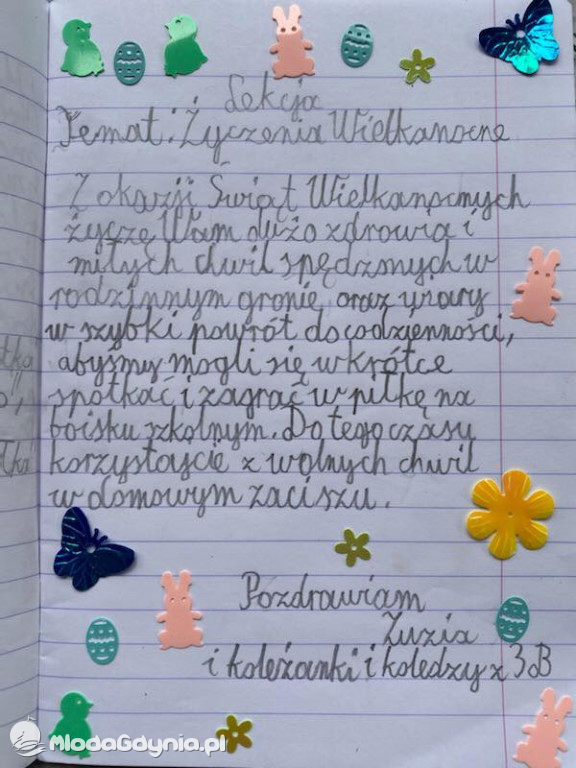 Lekcja
Temat: Życzenia Wielkanocne
Z okazji Świąt Wielkanocnych
życzę Wam dużo zdrowia i
miłych chwil spędzonych w
rodzinnym gronie, oraz wiary
w szybki powrót do codzienności,
abyśmy mogli się wkrótce
spotkać i zagrać w piłkę na
boisku szkolnym. Do tego czasu
korzystajcie z wolnych chwil
w domowym zaciszu.
Pozdrawiam
Zuzia
i koleżanki i koledzy z 3 B
MlodaGdynia.pl